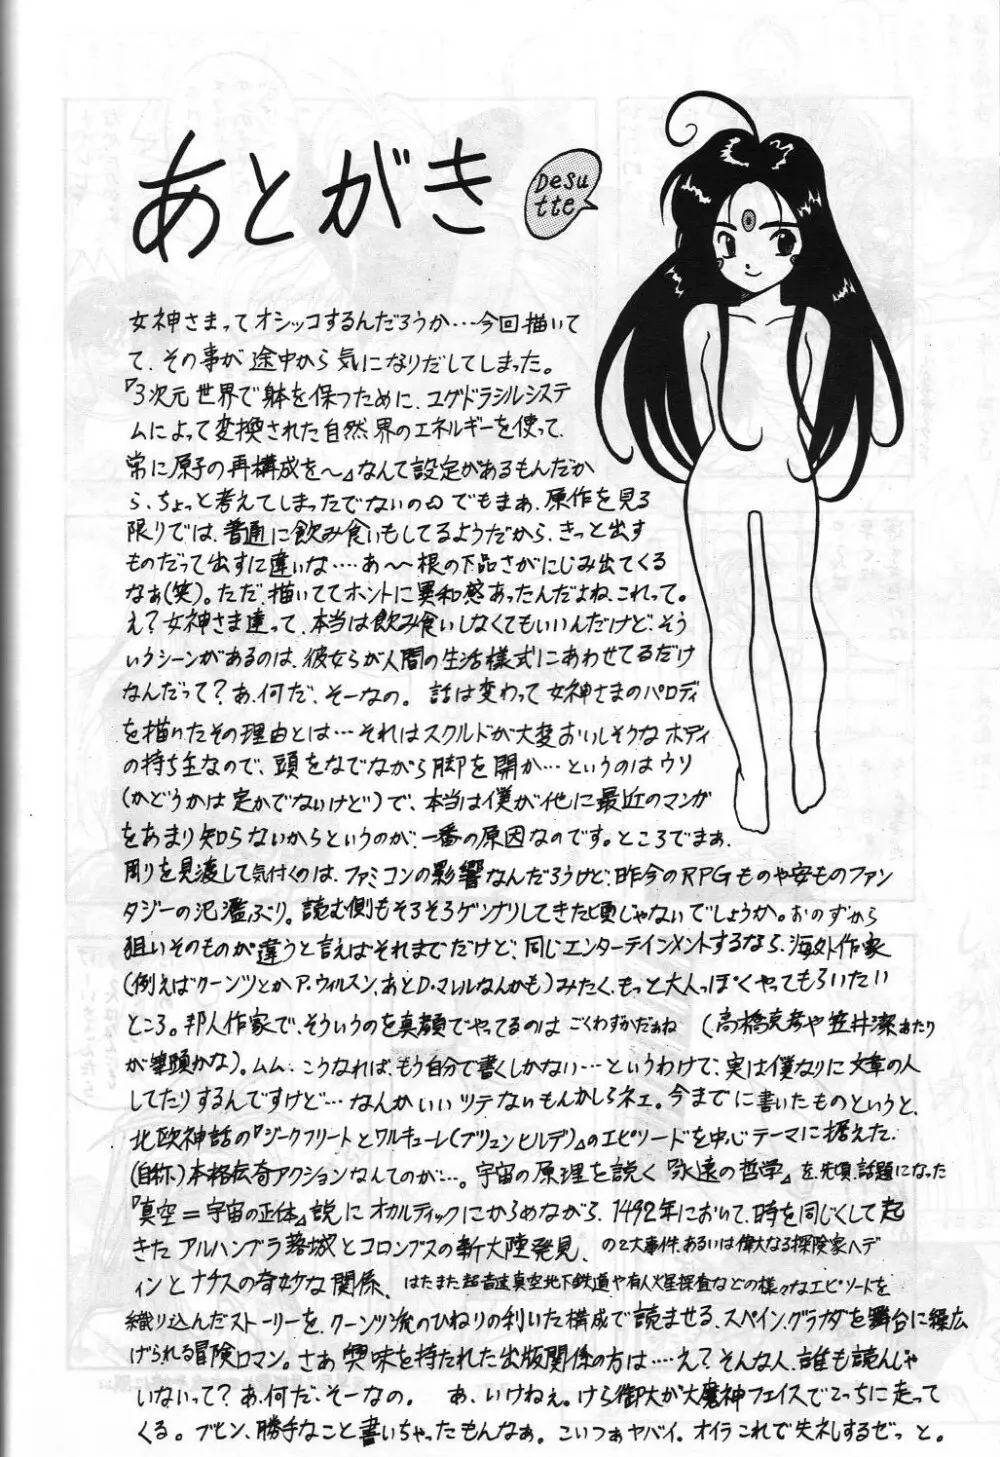 あとがき
Desu
tte
女神さまってオシッコするんだろうか…今回描いて
て、その事が途中から気になりだしてしまった。
『3次元世界で躰を保つために、ユグドラシルシステ
ムによって変換された自然界のエネルギーを使って、
常に原子の再構成を〜』なんて設定があるもんだか
ら、ちょっと考えてしまったでないの。でもまぁ、原作を見る
限りでは、普通に飲み食いもしてるようだから、きっと出す
ものだって出すに違いな……あ〜〜根の下品さがにじみ出てくる
なぁ(笑)。ただ、描いててホントに異和感あったんだよね、これって。
え?女神さま達って、本当は飲み食いしなくてもいいんだけど、そう
いうシーンがあるのは、彼女らが人間の生活様式にあわせてるだけ
なんだって?あ、何だ、そーなの。 話は変わって女神さまのパロディ
を描いたその理由とは…それはスクルドが大変おいしそうなボディ
の持ち主なので、頭をなでながら脚を開か…というのはウソ
(かどうかは定かでないけど)で、本当は僕が他に最近のマンガ
をあまり知らないからというのが、一番の原因なのです。ところでまぁ、
周りを見渡して気付くのは、ファミコンの影響なんだろうけど、昨今のRPGものや安ものファン
タジーの氾濫ぶり。読む側もそろそろゲンナリしてきた頃じゃないでしょうか。おのずから
狙いそのものが違うと言えばそれまでだけど、同じエンターテインメントするなら、海外作家
(例えばクーンツとかA.ウィルスン、あとD.マレルなんかも)みたく、もっと大人っぽくやってもらいたい
ところ。邦人作家で、そういうのを真顔でやってるのはごくわずかだぁね (高橋克彦や笠井潔あたり
が筆頭かな)。ムム…こうなれば、もう自分で書くしかない…というわけで、実は僕なりに文章の人
してたりするんですけど…なんかいいツテないもんかしらネェ。今までに書いたものというと、
北欧神話の『ジークフリートとワルキューレ(ブリュンヒルデ)』のエピソードを中心テーマに据えた、
(自称)本格伝奇アクションなんてのが…。宇宙の原理を説く『永遠の哲学』を、先頃、話題になった
『真空=宇宙の正体』説にオカルティックにからめながら、1492年において、時を同じくして起
きたアルハンブラ落城とコロンブスの新大陸発見、の2大事件、あるいは偉大なる探険家ヘデ
ィンとナチスの奇妙な関係、はたまた超音速真空地下鉄道や有人火星探査などの様々なエピソードを
織り込んだストーリーを、クーンツ流のひねりの利いた構成で読ませる、スペイン、グラナダを舞台に繰広
げられる冒険ロマン。さぁ興味を持たれた出版関係の方は……え?そんな人、誰も読んじゃ
いないって?あ、何だ、そーなの。 あ、いけねぇ。けら御大が大魔神フェイスでこっちに走って
くる。ブヒン、勝手なこと書いちゃったもんなぁ。こいつぁヤバイ。オイラこれで失礼するぜっと。